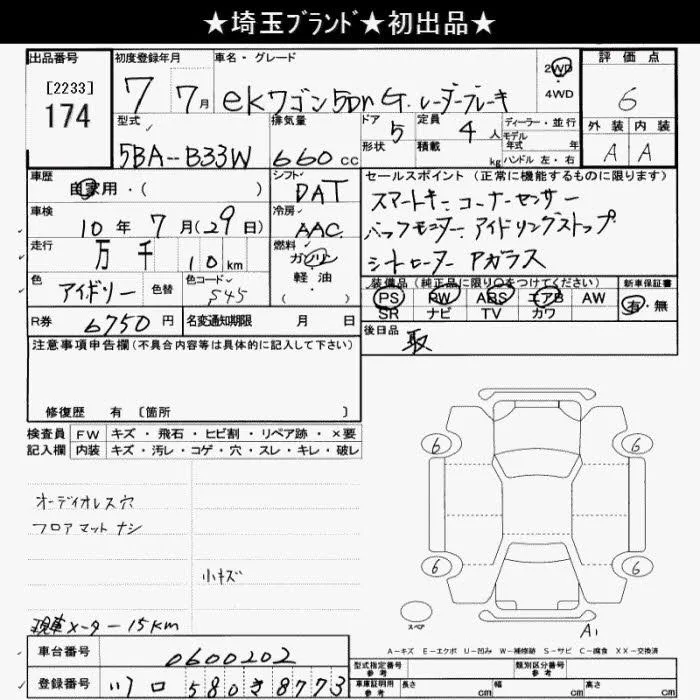 ★埼玉ﾌﾞﾗﾝﾄﾞ★初出品★
出品番号 初度登録年月 車名・グレード 2WD 評価点
[2233]
174 7 7月 ekワゴン 5Dn G. レーダーブレーキ 4WD 6
型式 排気量 ドア 5 定員 4人 ディーラー・並行 外装 内装
形状 積載 kg モデル年式 年
5BA--B33W 660cc ハンドル 左・右 A A
車歴 自家用・( ) シフト DAT セールスポイント (正常に機能するものに限ります)
車検 10年 7月(29日) 冷房 AAC スマートキー コーナーセンサー
走行 万 千 10km 燃料 ガソリン・軽油 バックモニター アイドリングストップ
シートヒーター Aガラス
色 アイボリー 色替 色コード S45 ( ) 装備品 (純正品に限り○をつけてください) 新車保証書
PS PW ABS エアB AW 有・無
SR ナビ TV カワ
R券 6750円 名変通知期限 月 日 後日品 取
注意事項申告欄(不具合内容等は具体的に記入して下さい)
修復歴 有 〔箇所 〕
検査員 FW キズ・飛石・ヒビ割・リペア跡・×要
記入欄 内装 キズ・汚レ・コゲ・穴・スレ・キレ・破レ
オーディオレス穴
フロアマットナシ
小キズ
6 6
6 6
スペア
A1
現車メーター 15Km
A-キズ E-エクボ U-凹み W-補修跡 S-サビ C-腐食 XX-交換済
車台番号 0600202 型式指定番号 参考 類別区分番号 参考
登録番号 580き8773 車庫証明用 参考 長さ cm 幅 cm 高さ cm